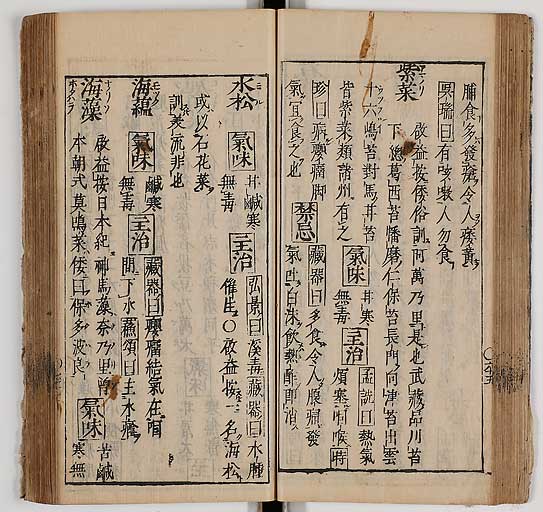 脯食多發瘡令人痿黃
思邈曰有咳嗽人勿食
紫菜
啟益按倭俗訓阿萬乃里是也武藏品川苔
下總葛西苔播磨仁保苔長門向津苔出雲
十六嶋苔對馬 苔
皆紫菜類諸州有之
氣味
甘寒
無毒
主治
孟詵曰熱氣
煩塞咽喉時
珍曰病癭瘤脚
氣宜食之也
禁忌
藏器曰多食令人腹痛發
氣吐白沫飲熱醋即消
水松
氣味
甘鹹寒
無毒
主治
弘景曰溪毒藏器曰水腫
催生〇啟益按一名海松
或以石花菜
訓 流非也
海蘊
氣味
鹹寒
無毒
主治
藏器曰癭瘤結氣在咽
間下水蘇頌曰主水癊
海藻
啟益按日本紀神馬藻奈乃里曾
本朝式莫鳴菜倭曰保多波良
氣味
苦鹹
寒無